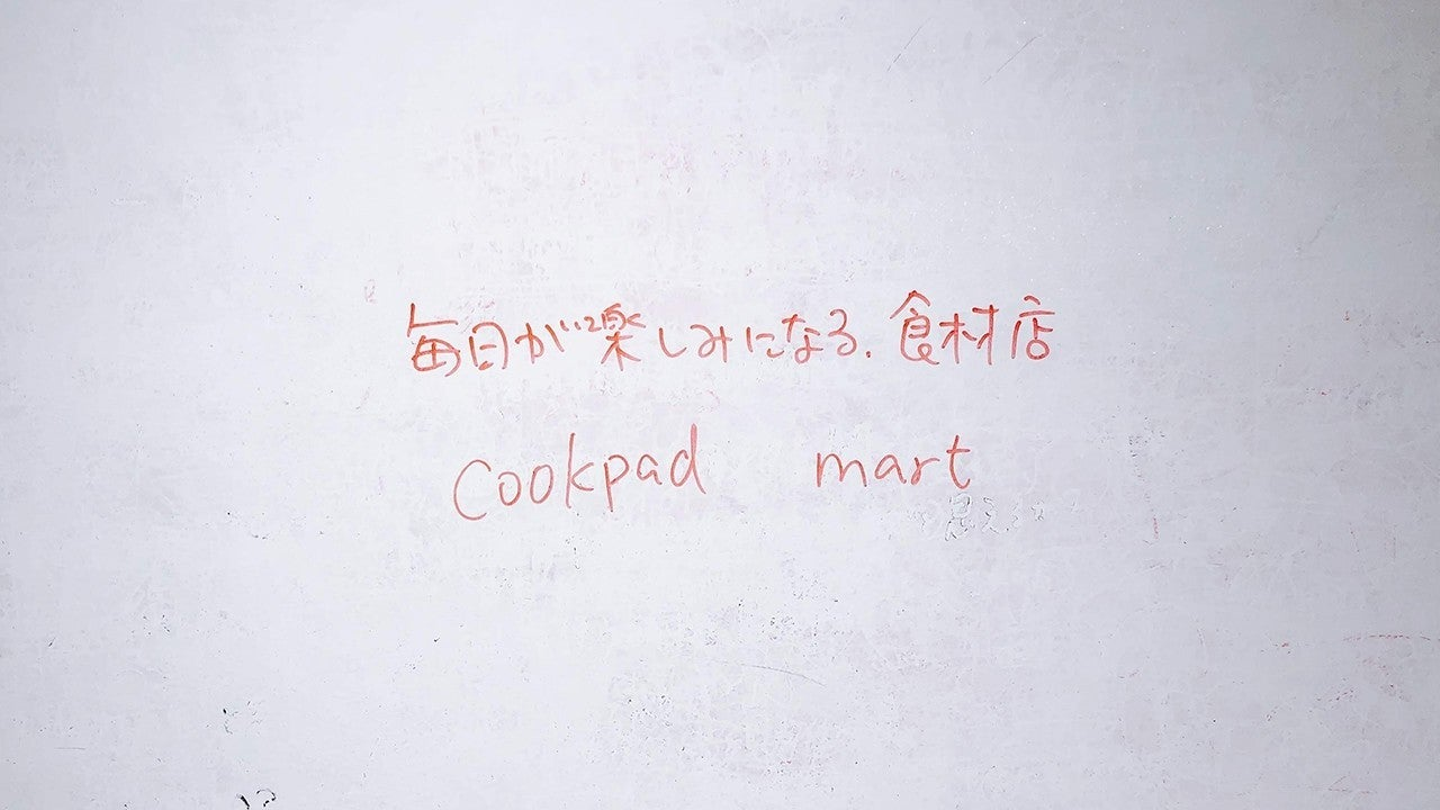 毎日が楽しみになる、食材店
Cookpad mart